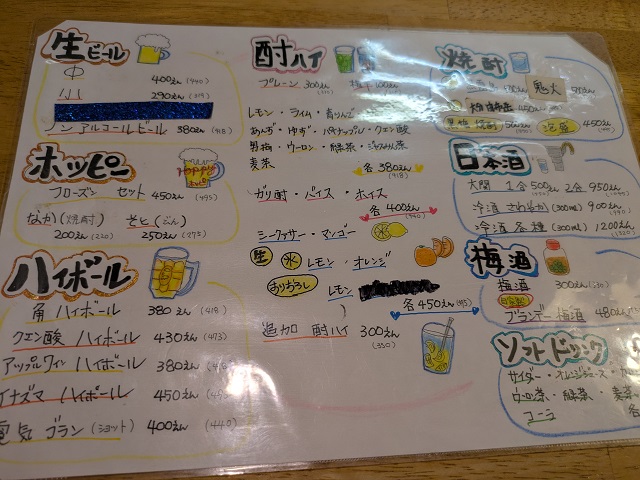 生ビール
中 400えん (440)
小 290えん (319)
ノンアルコールビール 380えん (418)
ホッピー
フローズン セット 450えん (495)
なか(焼酎) そと(びん)
200えん(220) 250えん(275)
ハイボール
角 ハイボール 380えん (418)
クエン酸 ハイボール 430えん (473)
アップルワイン ハイボール 380えん
イナズマ ハイボール 450えん
電気ブラン (ショット) 400えん (440)
酎ハイ
プレーン 300えん
レモン・ライム・青りんご
あんず・ゆず・パイナップル・クエン酸
男梅・ウーロン・緑茶・ジャスミン茶
麦茶
各380えん
(418)
ガリ酎・バイス・ホイス
各400えん
(440)
シークァサー・マンゴー
生 氷 レモン オレンジ
レモン
各450えん (495)
追加 酎ハイ 300えん
(330)
焼酎
鬼火
黒梅
泡盛 450えん
日本酒
大関 1合 500えん 2合 950えん
冷酒 さわやか (300ml) 900えん
冷酒 各種 (300ml) 1200えん
梅酒
梅酒 300えん (330)
自家製
ブランデー梅酒 480えん
ソフトドリンク
サイダー・オレンジジュース
ウーロン茶・緑茶・麦茶
コーラ 各